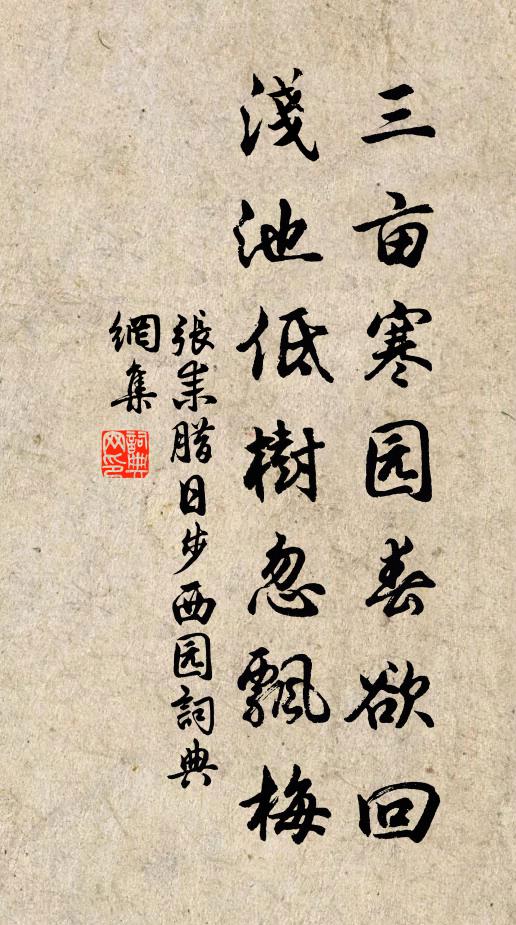 三亩寒园春欲回
淺池低樹忽飄梅
張耒腊日步西园詞典
網集
詞典
网印